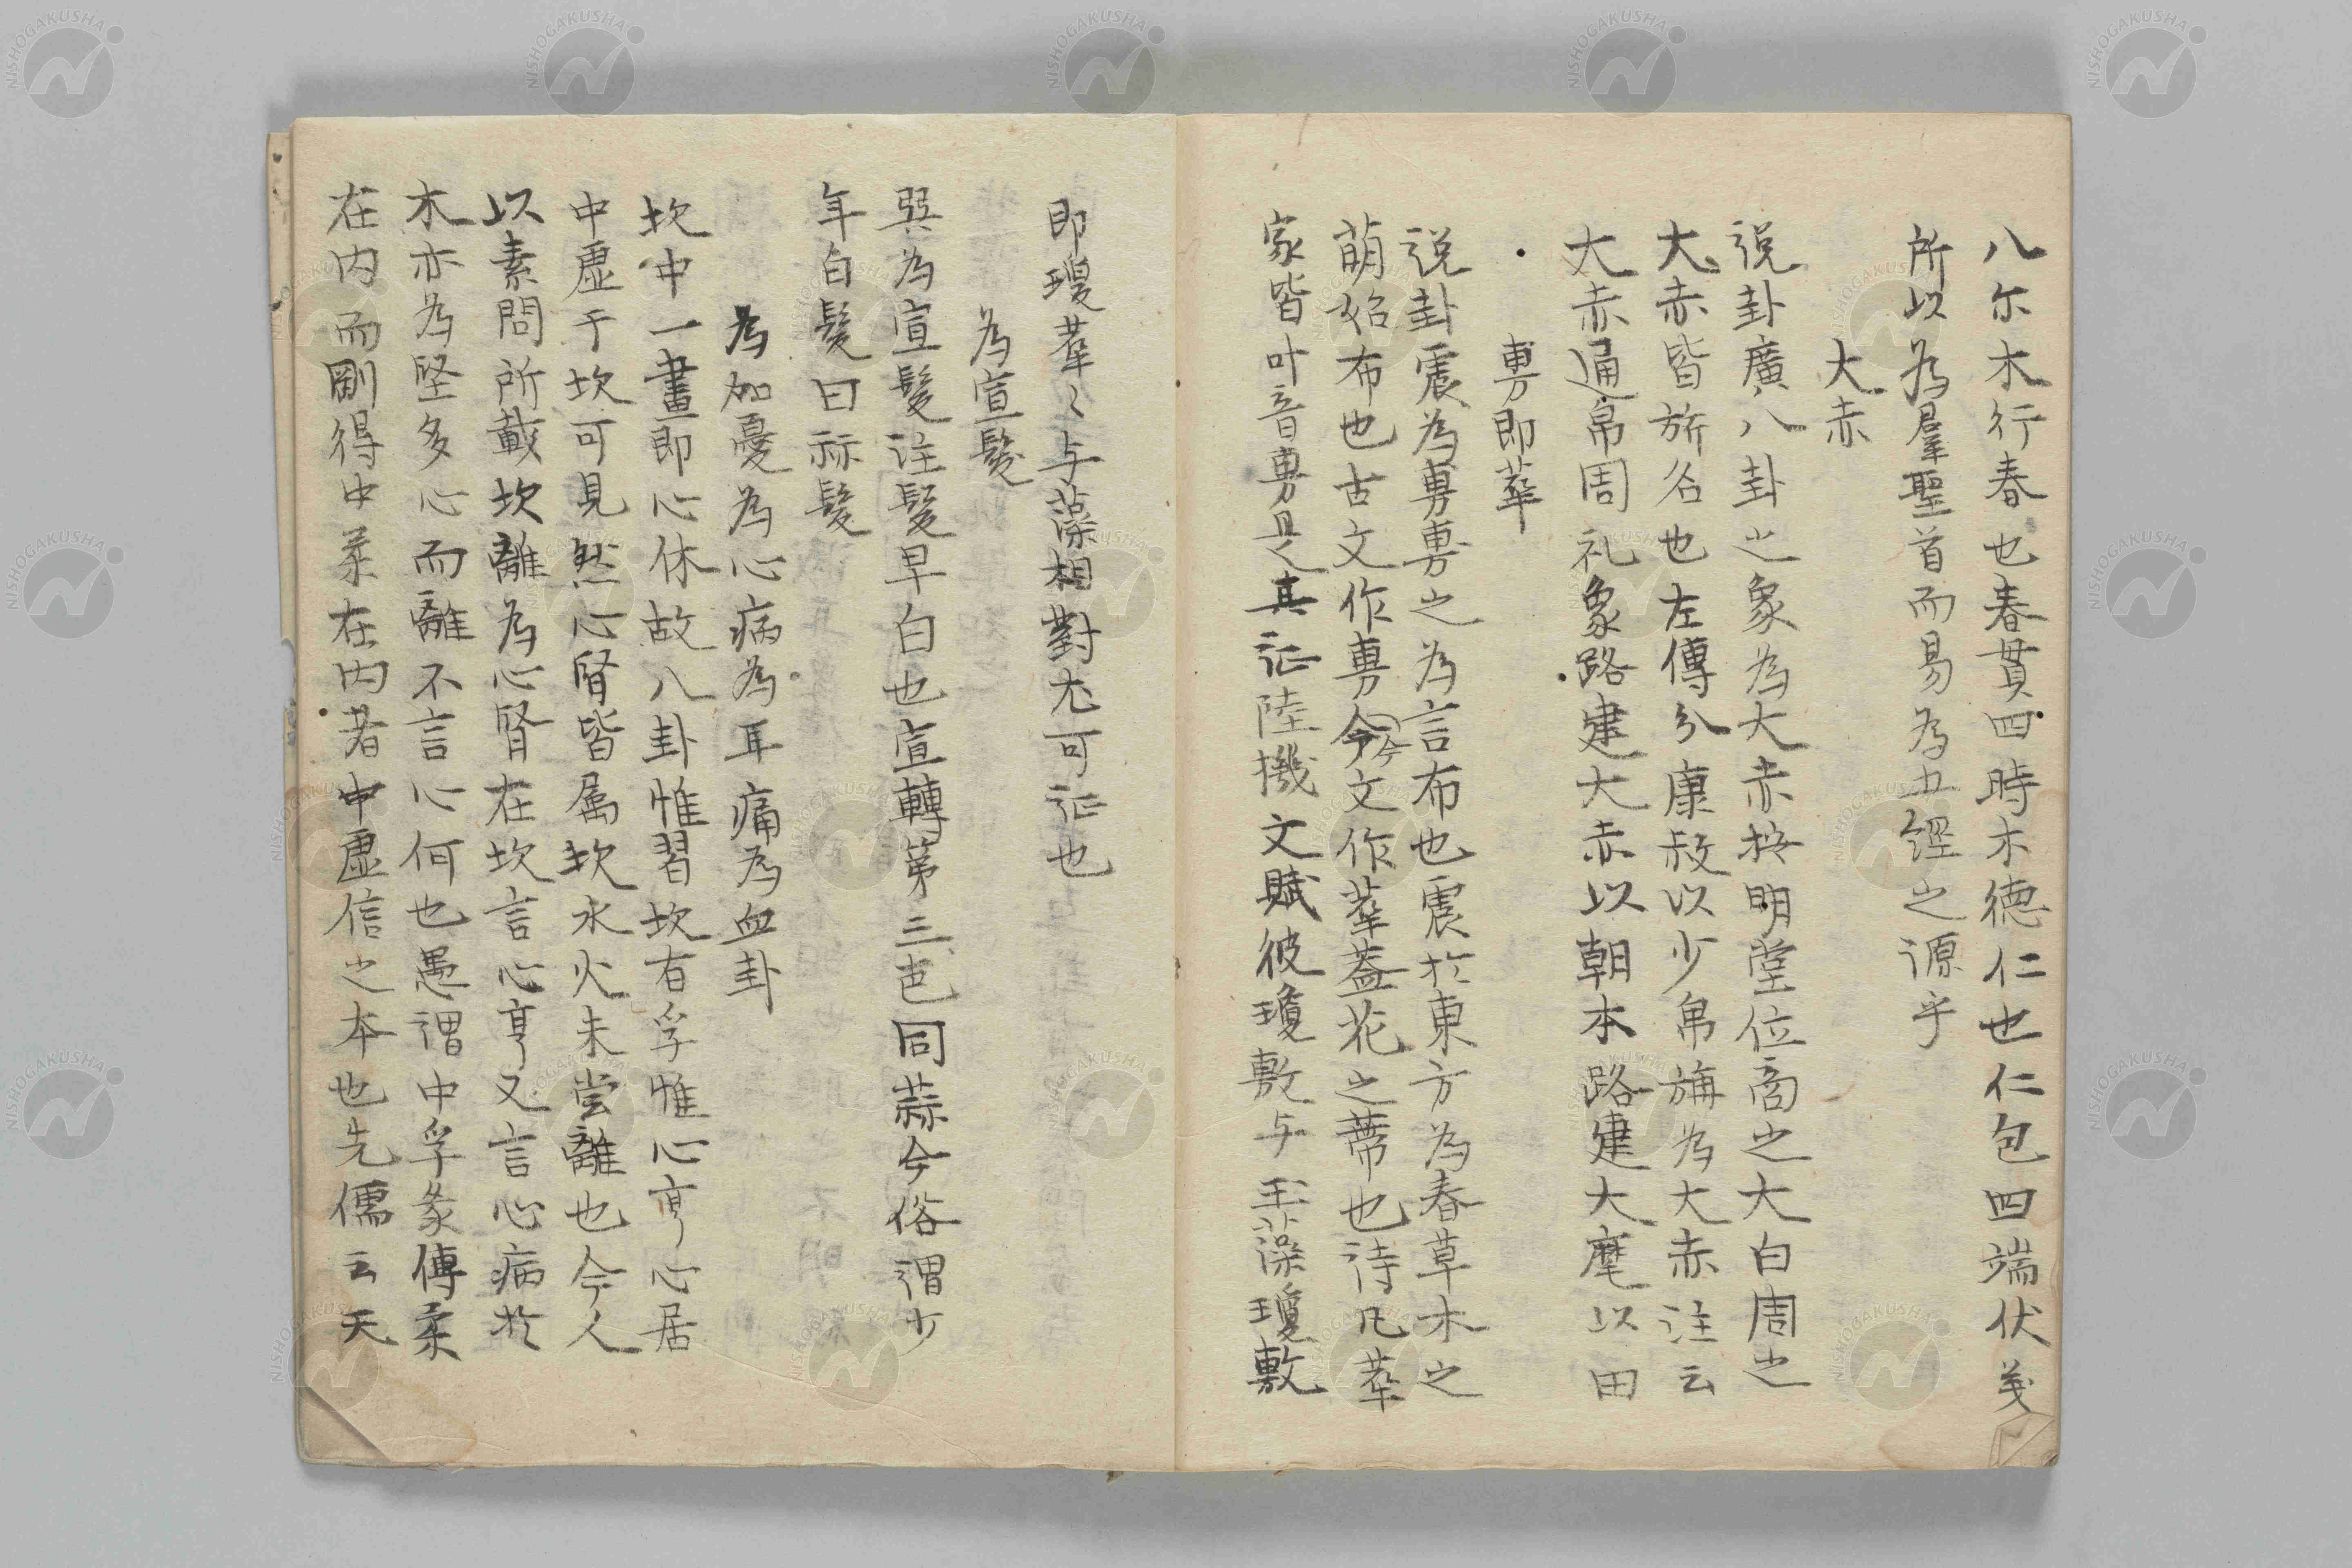 八尓木行春也春貫四時木德仁也仁包四端伏羲
所以為羣聖首而易為五經之源乎
大赤
説卦廣八卦之象為大赤按明堂位商之大白周之
大赤皆旂名也左傳分康叔以少帛旃為大赤注云
大赤通帛周礼象路建大赤以朝本路建大麾以田
旉即華
説卦震為旉旉之為言布也震於東方為春草木之
萌始布也古文作旉今文作蕐蓋花之蒂也詩凡蕐
家皆叶音旉是其証陸機文賦彼瓊敷与玉藻瓊敷
即瓊蕐〻与藻相對尤可証也
為宣髮
巽為宣髮注髮早白也宣轉第三邑同蒜今俗謂少
年白髮曰祘髮
為加憂為心病為耳痛為血卦
坎中一畫即心休故八卦惟習坎有孚惟心亨心居
中虛于坎可見然心腎皆属坎水火未嘗離也今人
以素問所載坎離為心腎在坎言心亨又言心病於
木亦為堅多心而離不言心何也愚謂中孚彖傳柔
在内而剛得中柔在内者中虛信之本也先儒云天
NISHOGAKUSHA